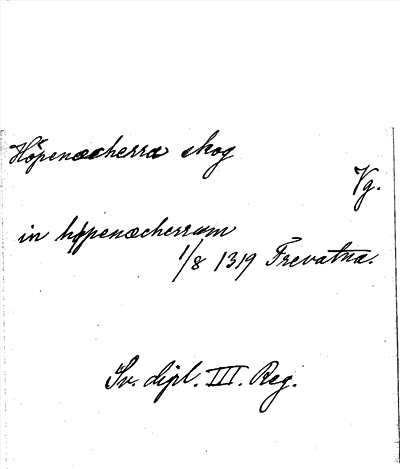 Höpenæcherra skog
Vg.
in höpenæcherrum
1/8 1319 Frevatna.
Sv. dipl. III. Reg.